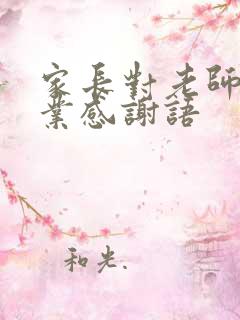 家長對老師
業感謝語
和光.